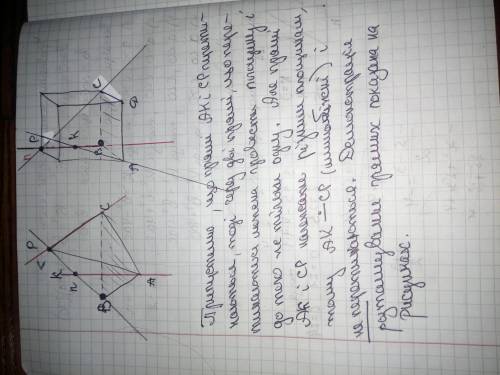 Припустимо, що прямі AK і CP перети-
наються, тоді через дві прямі, що пере-
тинаються можна провести площину і
до того ж тільки одну. Але прямі
AK і CP належать різним площинам,
тому AK ∸ CP (мимобіжні) і
не перетинаються. Демонстрація
розташування прямих показана на
рисунках.
P
K
n
B
C
A
n
P
K
B
C
D
A